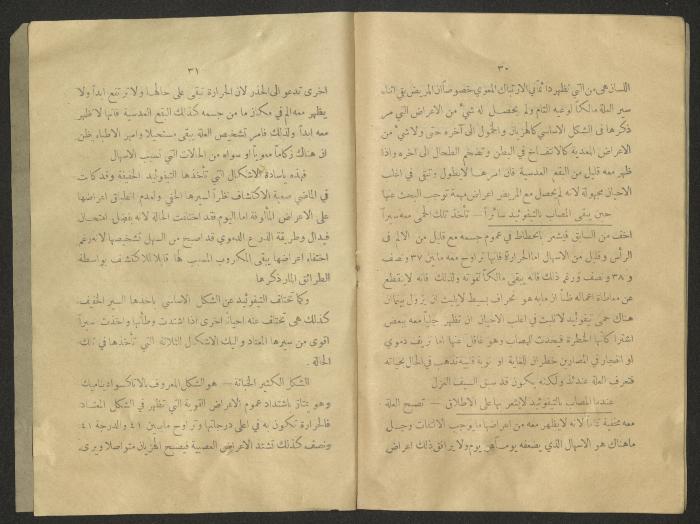 ٣٠
اللسان هي من التي تظهر دائماً في الارتباك المعوي خصوصاً ان المريض يبقى اثناء
سير العلة مالكاً لوعيه التام ولم يحصل له شيء من الاعراض التي مر
ذكرها في الشكل الاساسي كالهزيان والخمول الى آخره حتى ولا شيء من
الاعراض المعدية كالانتفاخ في البطن وتضخم الطحال الى اخره واذا
ظهر معه قليل من البقع العدسية فان امرها لا يطول وتبقى في اغلب
الاحيان مجهولة لانه لم يحصل مع المريض اعراض مهمة توجب البحث عنها
حين يبقى المصاب بالتيفوئيد سائراً — تأخذ تلك الحمى معه سيراً
اخف من السابق فيشعر بانحطاط في عموم جسمه مع قليل من الالم في
الرأس وقليل من الاسهال اما الحرارة فانها تراوح معه ما بين ٣٧ ونصف
و ٣٨ ونصف ورغم ذلك فانه يبقى مالكاً لقوته ولذلك فانه لا ينقطع
عن معاطاة اعماله ظناً ان ما به هو انحراف بسيط لا يلبث ان يزول بينما ان
هناك حمى تيفوئيد لا تلبث في اغلب الاحيان ان تظهر جلياً معه ببعض
اشتراكاتها الخطرة فيحدث للمصاب وهو غافل عنها اما نزيف دموي
او انفجار في المصارين خطران للغاية او نوبة قلبية تذهب في الحال بحياته
فتعرف العلة عندئذ ولكنه يكون قد سبق السيف العزل
عندما المصاب بالتيفوئيد لا يشعر بها على الاطلاق — تصبح العلة
معه مخفية تماماً لانه لا يظهر معه من اعراضها ما يوجب الالتفات وجل
ما هناك هو الاسهال الذي يضعفه يوماً عن يوم ولا يرافق ذلك اعراض
٣١
اخرى تدعو الى الحذر لان الحرارة تبقى على حالها ولا ترتفع ابداً ولا
يظهر معه الم في مكان ما من جسمه كذلك البقع العدسية فانها لا تظهر
معه ابداً ولذلك فامر تشخيص العلة يبقى مستحيلا وامر الاطباء يظن
ان هناك زكاماً معوياً او سواه من الحالات التي تسبب الاسهال
فهذه ياسادة الاشكال التي تأخذها التيفوئيد الخفيفة وقد كانت
في الماضي صعبة الاكتشاف نظراً لسيرها الخفي ولعدم انطباق اعراضها
على الاعراض المألوفة اما اليوم فقد اختلفت الحالة لانه بفضل امتحان
فيدال وطريقة الذرع الدموي قد اصبح من السهل تشخيصها لانه رغم
اختفاء اعراضها يبقى المكروب المسبب لها قابلا للاكتشاف بواسطة
الطرائق المار ذكرها
وكما تختلف التيفوئيد عن الشكل الاساسي باخذها السير الخفيف
كذلك هي تختلف عنه احياناً اخرى اذا اشتدت وطأتها واخذت سيراً
اقوى من سيرها المعتاد واليك الاشكال الثلاثة التي تأخذها في تلك
الحالة .
الشكل الكثير الخباثة — هو الشكل المعروف بالاتاكسو اديناميك
وهو يمتاز باشتداد عموم الاعراض القوية التي تظهر في الشكل المعتاد
فالحرارة تكون به في اعلى درجاتها وتراوح ما بين ٤١ والدرجة ٤١
ونصف كذلك تشتد الاعراض العصبية فيصبح الهزيان متواصلا ويرى